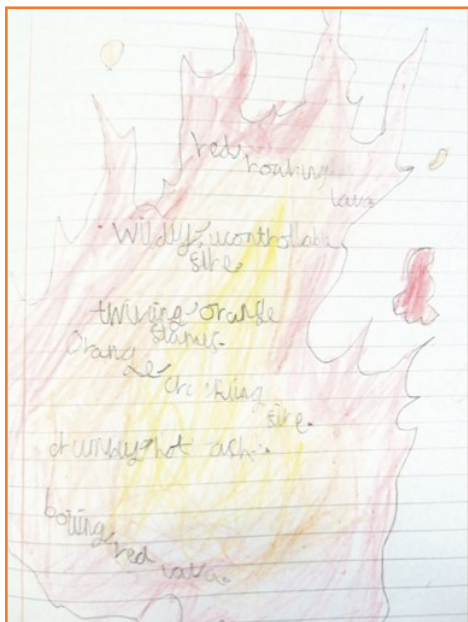 red, roaring
lava
Wildly, ucontrollable
fire.
twiring, orange
flames.
Orange
crackling
fire.
hot ash.
boiling, red lava.